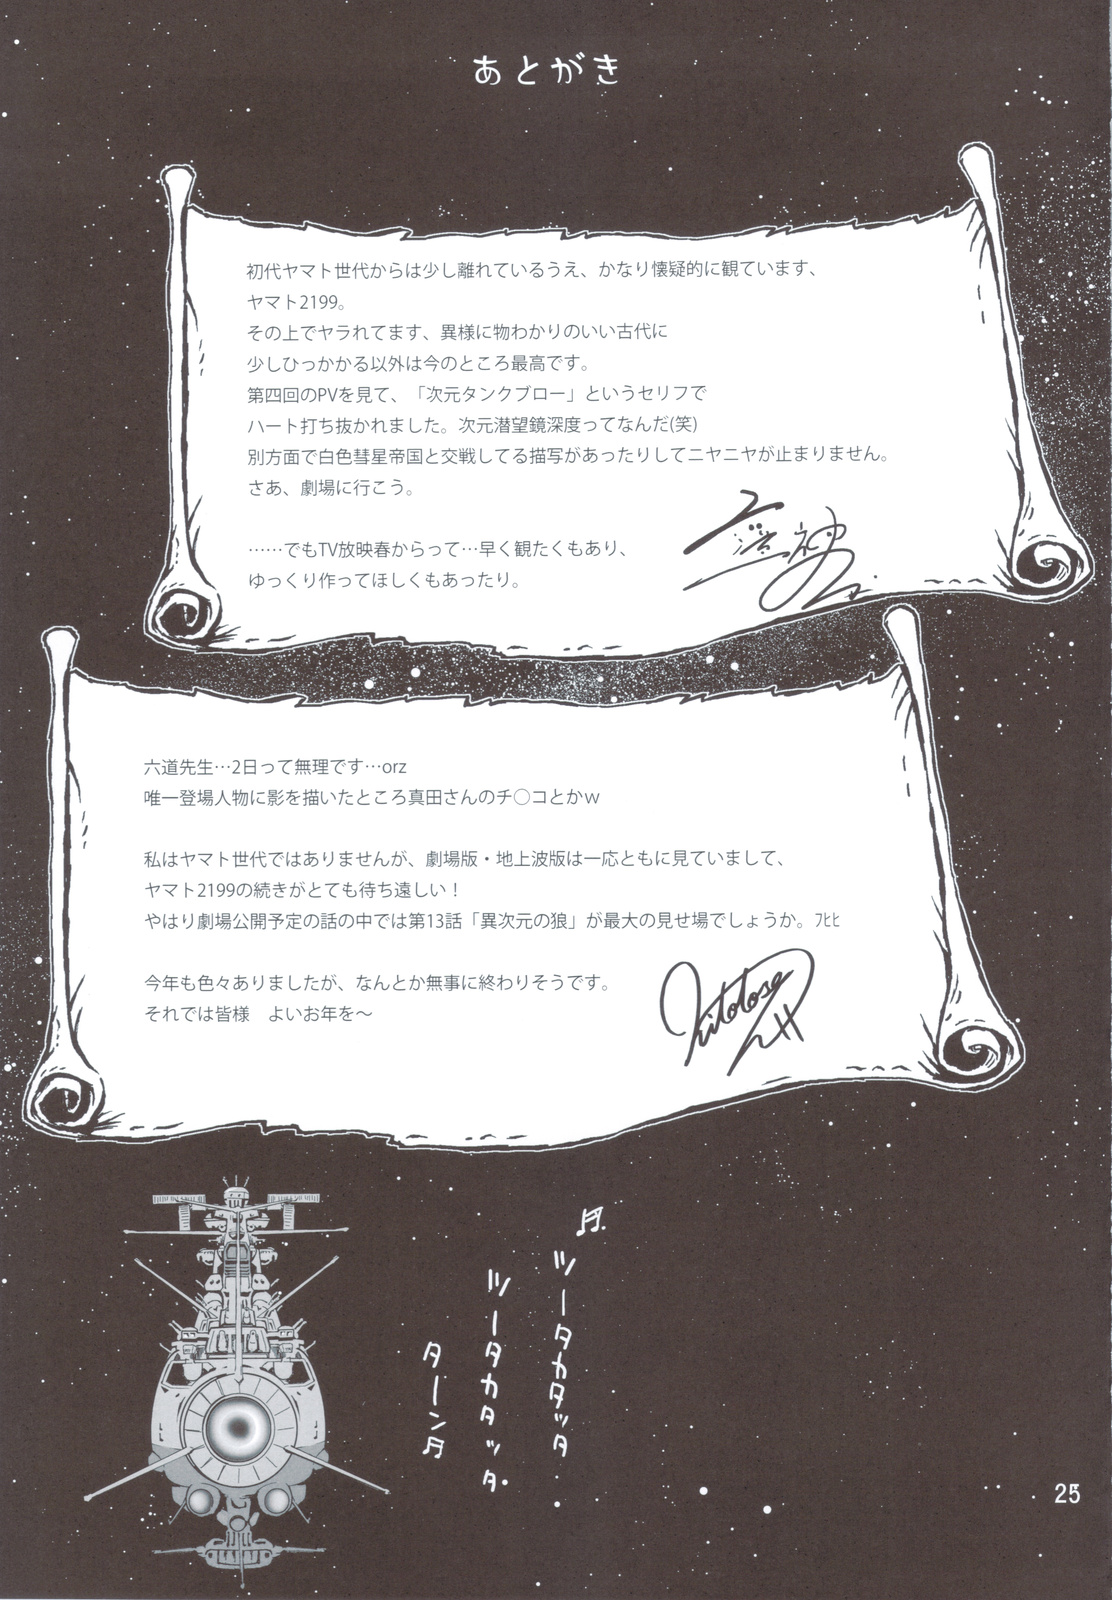 あとがき
初代ヤマト世代からは少し離れているうえ、かなり懐疑的に観ています、
ヤマト2199。
その上でヤラれてます、異様に物わかりのいい古代に
少しひっかかる以外は今のところ最高です。
第四回のPVを見て、「次元タンクブロー」というセリフで
ハート打ち抜かれました。次元潜望鏡深度ってなんだ(笑)
別方面で白色彗星帝国と交戦してる描写があったりしてニヤニヤが止まりません。
さあ、劇場に行こう。
……でもTV放映春からって…早く観たくもあり、
ゆっくり作ってほしくもあったり。
六道先生…2日って無理です…orz
唯一登場人物に影を描いたところ真田さんのチ○コとかｗ
私はヤマト世代ではありませんが、劇場版・地上波版は一応ともに見ていまして、
ヤマト2199の続きがとても待ち遠しい！
やはり劇場公開予定の話の中では第13話「異次元の狼」が最大の見せ場でしょうか。ﾌﾋﾋ
今年も色々ありましたが、なんとか無事に終わりそうです。
それでは皆様　よいお年を～
♬ ツータカタッタ
ツータカタッタ
ターン♬
25